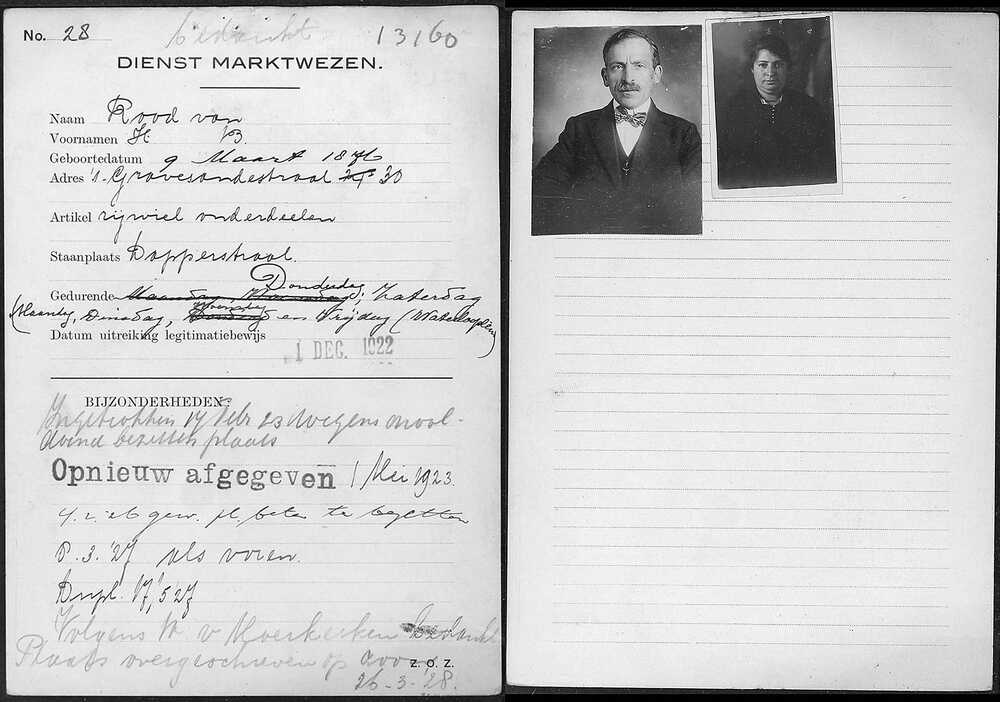 No. 28 bedankt 13160
DIENST MARKTWEZEN.
Naam Rood van
Voornamen H B.
Geboortedatum 9 Maart 1876
Adres 's-Gravesandestraat 30
Artikel rijwiel onderdeelen
Staanplaats Dapperstraat.
Donderdag
Gedurende Maandag, Woensdag; Zaterdag
Woensdag
(Maandag, Dinsdag, en Vrijdag (Waterlooplein)
Datum uitreiking legitimatiebewijs
1 DEC. 1922
BIJZONDERHEDEN:
Ingetrokken 17 Febr 23 wegens onvol-
doend bezetten plaats
Opnieuw afgegeven 1 Mei 1923.
4.2.26 gew. pl. beter te bezetten
8.3.'27 als voren.
Dupl. 17/5 27
Volgens v Moerkerken bedankt
Plaats overgeschreven op zoon
Z. O. Z.
26-3-'28.